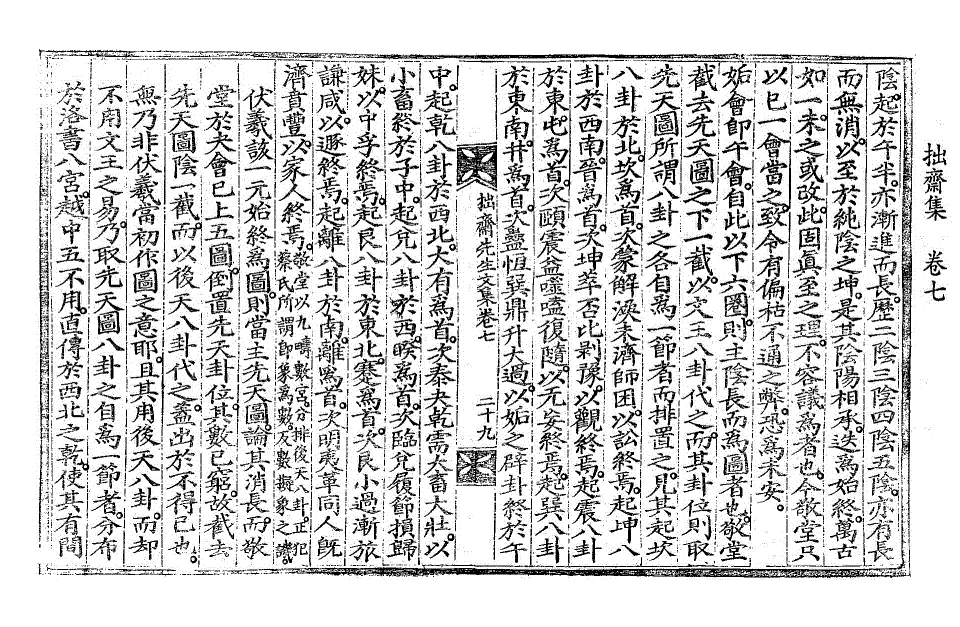 拙齋集　卷七
陰。起於午半。亦漸進而長。歷二陰三陰四陰五陰。亦有長
而無消。以至於純陰之坤。是其陰陽相承。迭爲始終。萬古
如一。未之或改。此固眞至之理。不容議爲者也。今敬堂只
以巳一會當之。致令有偏枯不通之弊。恐爲未安。
姤會卽午會。自此以下六圈。則主陰長而爲圖者也。敬堂
截去先天圖之下一截。以文王八卦代之。而其卦位則取
先天圖所謂八卦之各自爲一節者而排置之。見其起坎
八卦於北。坎爲首。次蒙解渙未濟師困。以訟終焉。起坤八
卦於西南。晉爲首。次坤萃否比剝豫。以觀終焉。起震八卦
於東。屯爲首。次頤震益噬嗑復隨。以无妄終焉。起巽八卦
於東南。井爲首。次蠱恒巽鼎升大過。以姤之辟卦終於午
拙齋先生文集卷七　二十九
中。起乾八卦於西北。大有爲首。次泰夬乾需大畜大壯。以
小畜終於子中。起兌八卦於西。睽爲首。次臨兌履節損歸
妹。以中孚終焉。起艮八卦於東北。蹇爲首。次艮小過漸旅
謙咸。以遯終焉。起離八卦於南。離爲首。次明夷革同人旣
濟賁豐。以家人終焉。敬堂以九疇數宮。分排後天八卦。正犯蔡氏所謂卽象爲數。反數擬象之譏。
伏羲該一元始終爲圖。則當主先天圖。論其消長。而敬
堂於夬會巳上五圖。倒置先天卦位。其數已窮。故截去
先天圖陰一截。而以後天八卦代之。蓋出於不得已也。
無乃非伏羲當初作圖之意耶。且其用後天八卦。而却
不用文王之易。乃取先天圖八卦之自爲一節者。分布
於洛書八宮。越中五不用。直傳於西北之乾。使其有間